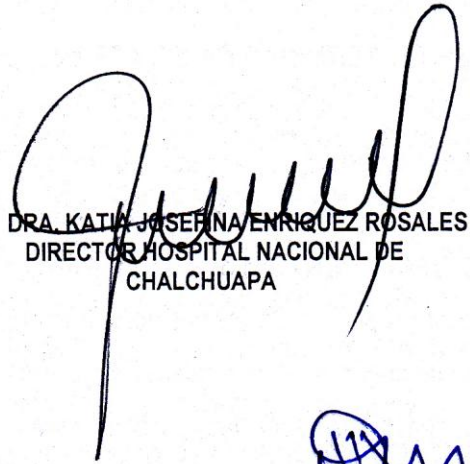 DRA. KATIA JOSEFINA ENRIQUEZ ROSALES
DIRECTOR HOSPITAL NACIONAL DE
CHALCHUAPA